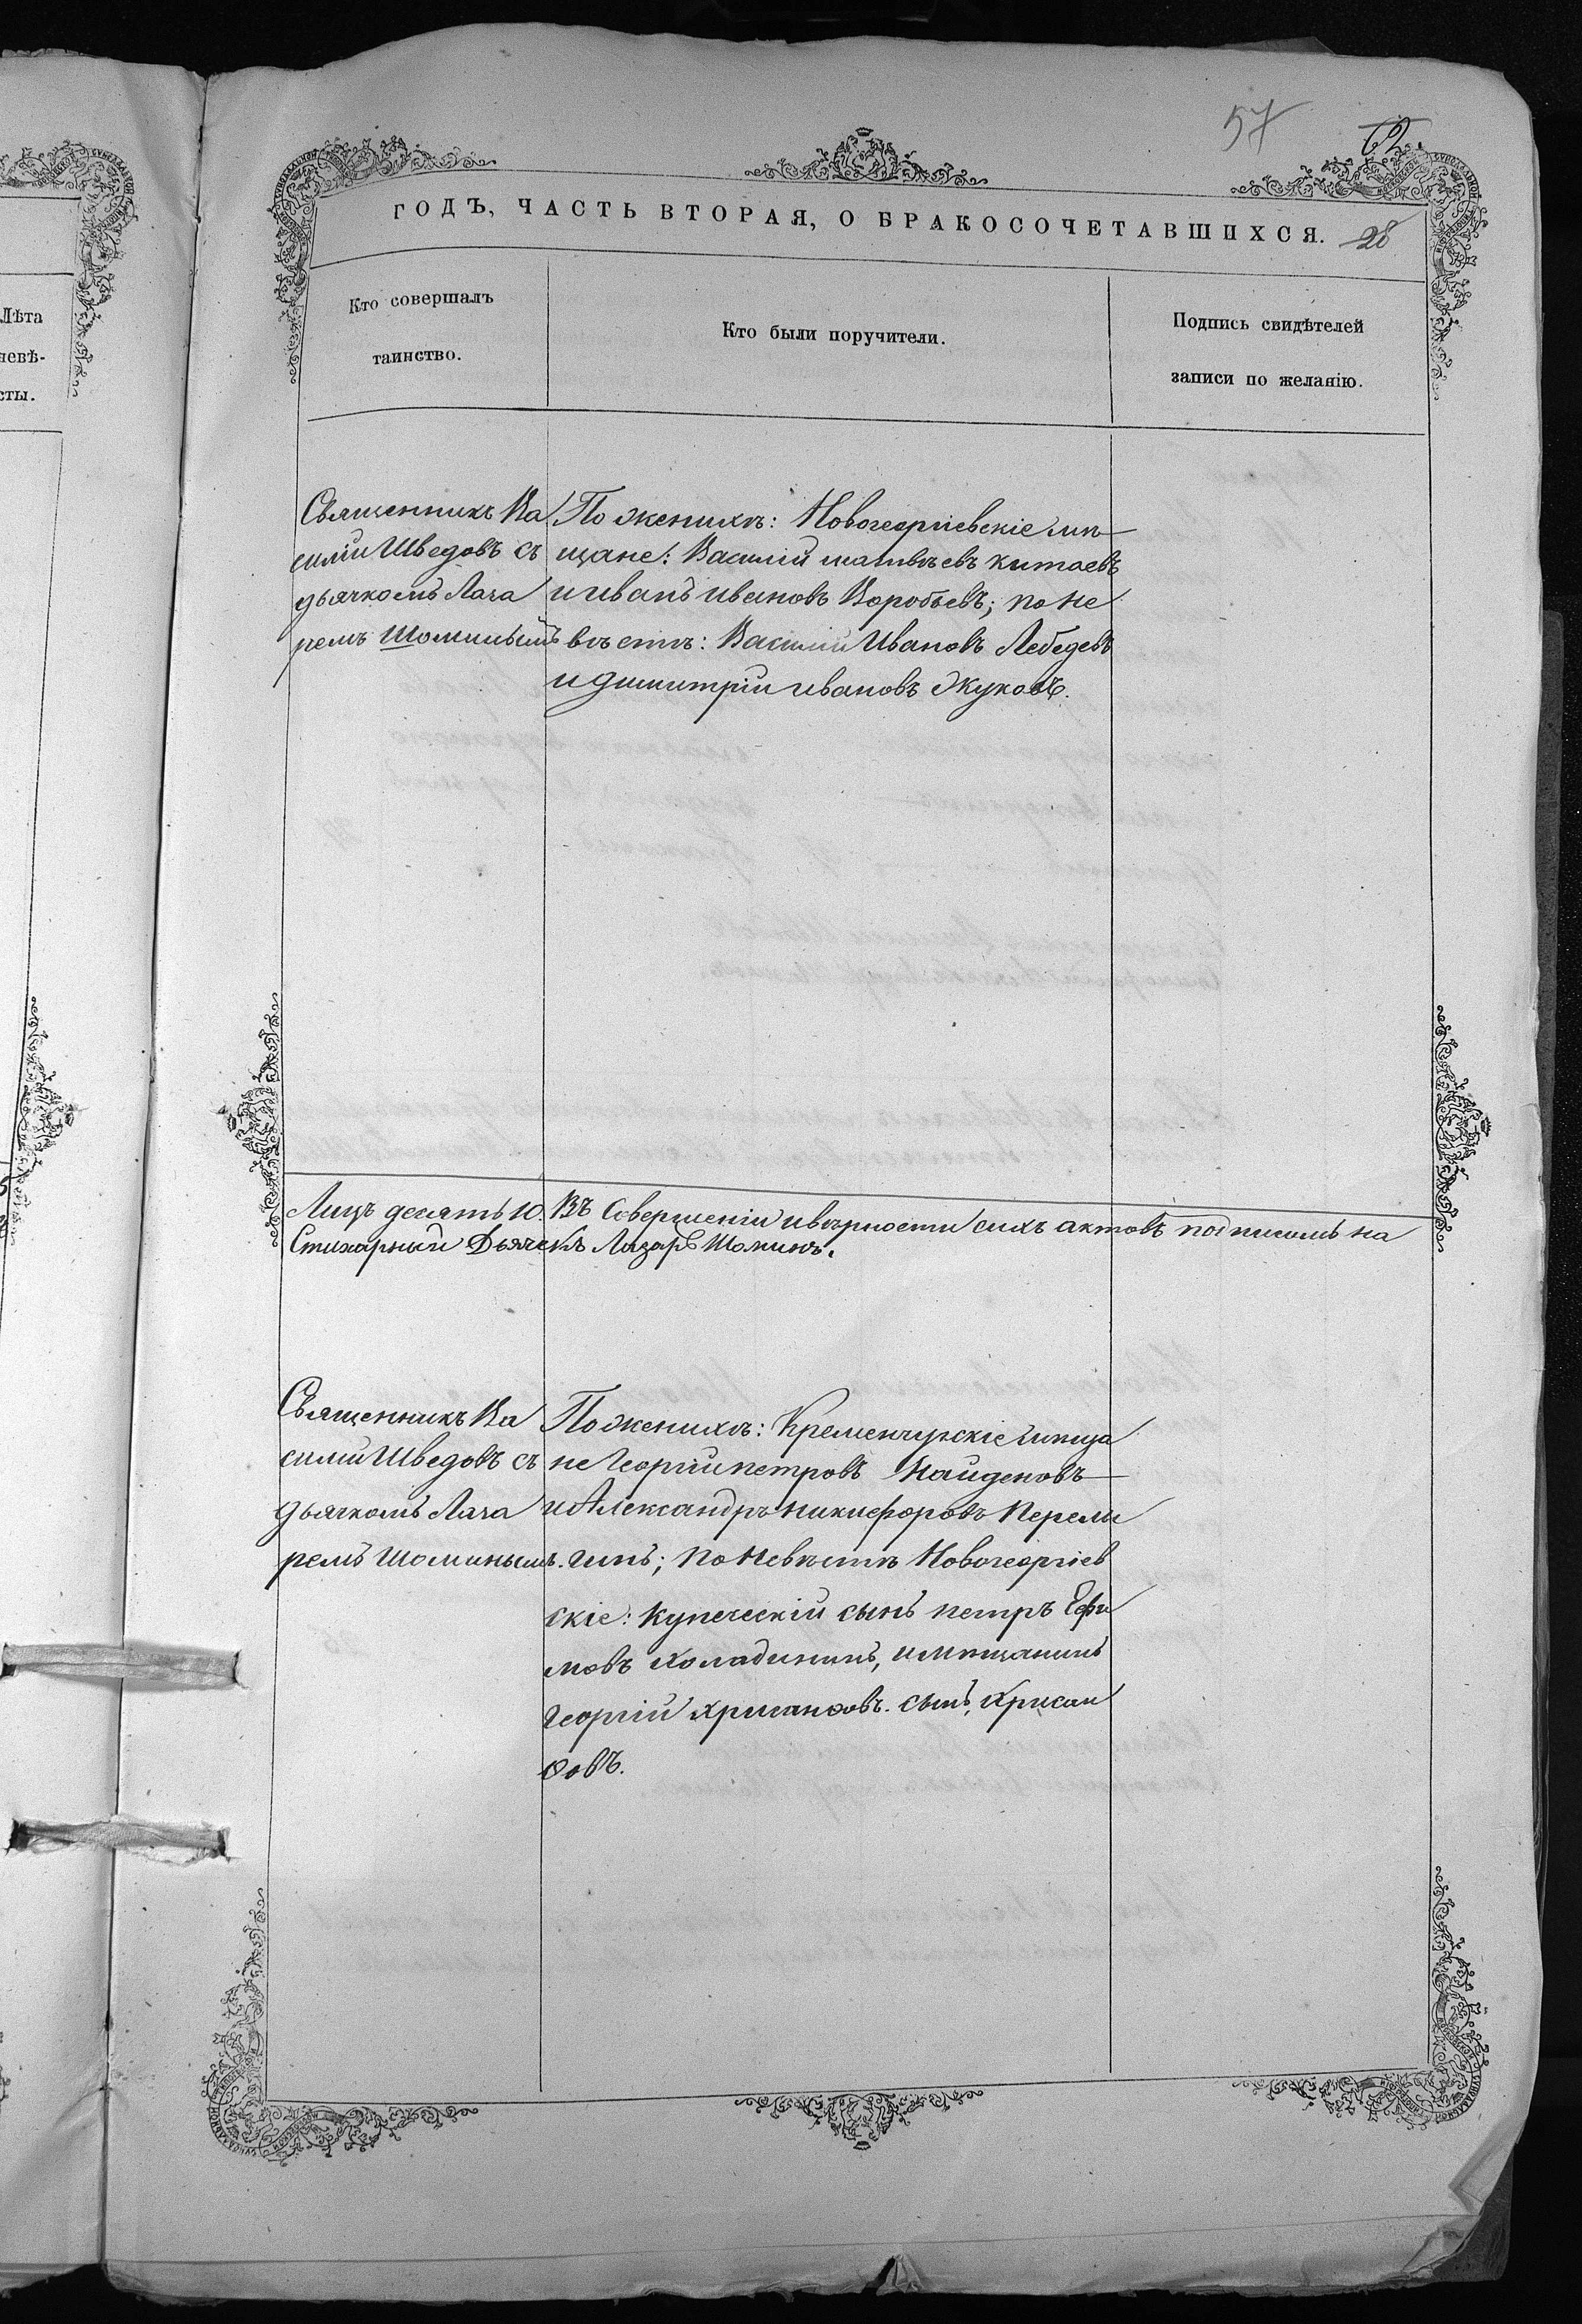 57
ГОДЪ, ЧАСТЬ ВТОРАЯ, О БРАКОСОЧЕТАВШИХСЯ. 28
Лѣта
невѣ-
сты.
Кто совершалъ
таинство.
Кто были поручители.
Подпись свидѣтелей
записи по желанію.
Священникъ Ва
силій Шведовъ съ
дьячкомъ Лаза
ремъ Шоминымъ
По женихѣ: Новогеоргіевскіе мѣ
щане: Василій матвѣевъ китаевъ
и иванъ ивановъ Воробьевъ; по не
вѣстѣ: Василій Ивановъ Лебедевъ
и дмитрій ивановъ Жуковъ.
Лицъ десять 10. Въ Совершеніи и вѣрности сихъ актовъ подписомъ на
Стихарный Дьячекъ Лазарь Шоминъ.
Священникъ Ва
силій Шведовъ съ
дьячкомъ Лаза
ремъ Шоминымъ.
По женихѣ: Кременчугскіе мѣща
не Георгій петровъ Найденовъ
и Александръ никифоровъ Перелы
гинъ; по невѣстѣ Новогеоргіев
скіе: купеческій сынъ петръ Ефи
мовъ Холадилинъ, и мѣщанинъ
Георгій хрисанѳовъ сынъ, Хрисан
ѳовъ.